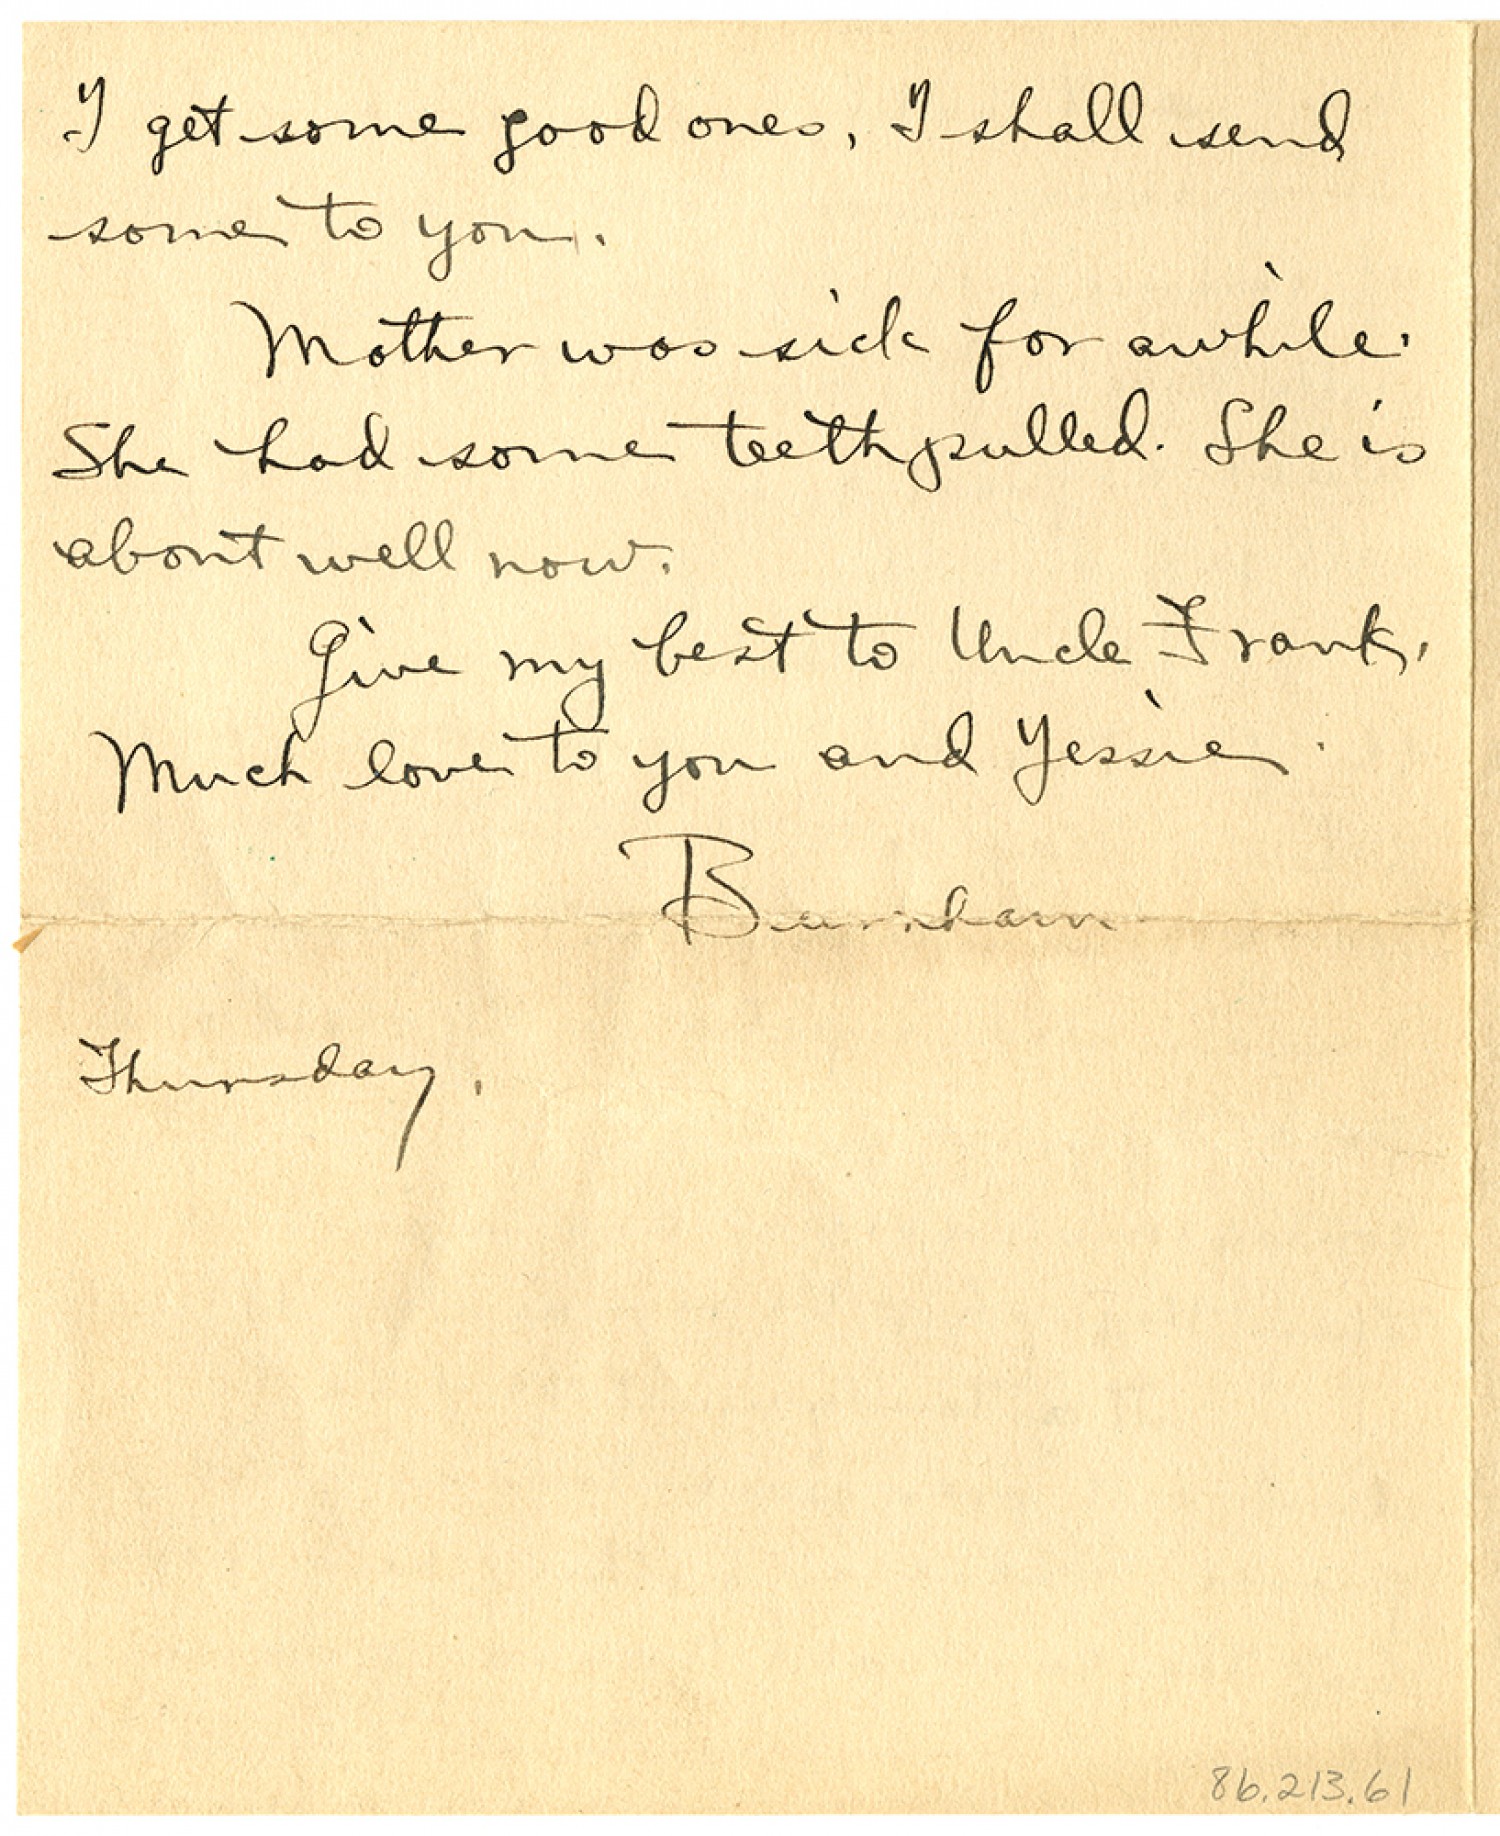 I get some good ones, I shall send
some to you.
Mother was sick for awhile.
She had some teeth pulled. She is
about well now.
Give my best to Uncle Frank.
Much love to you and Jessie.
Burnham
Thursday.
86.213.61